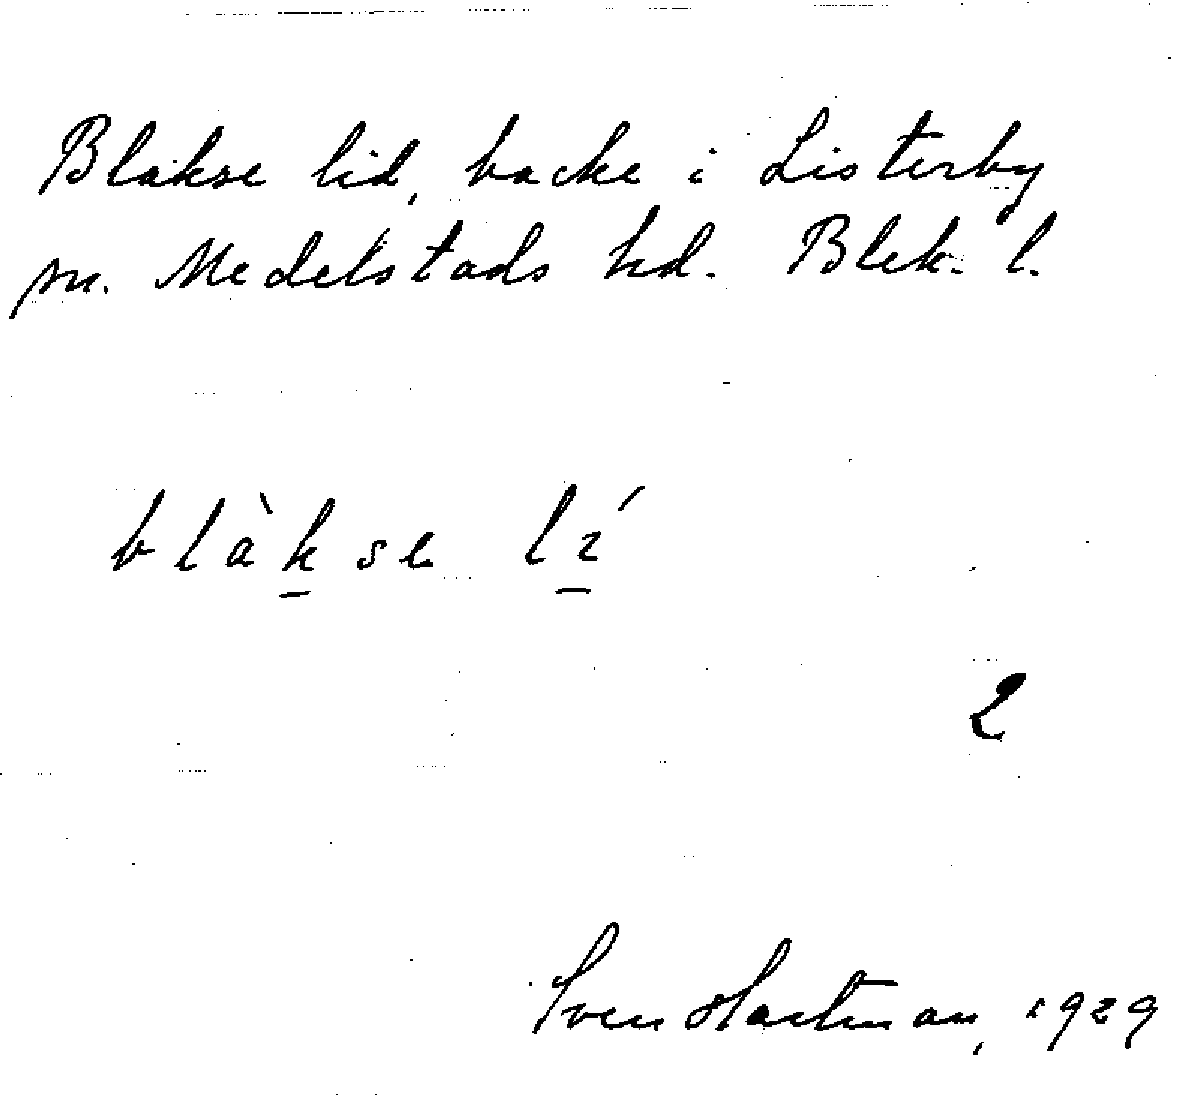 Blakse lid, backe i Listerby
sn. Medelstads hd. Blek. l.
blàkse lí
2
Sven Hartman, 1929